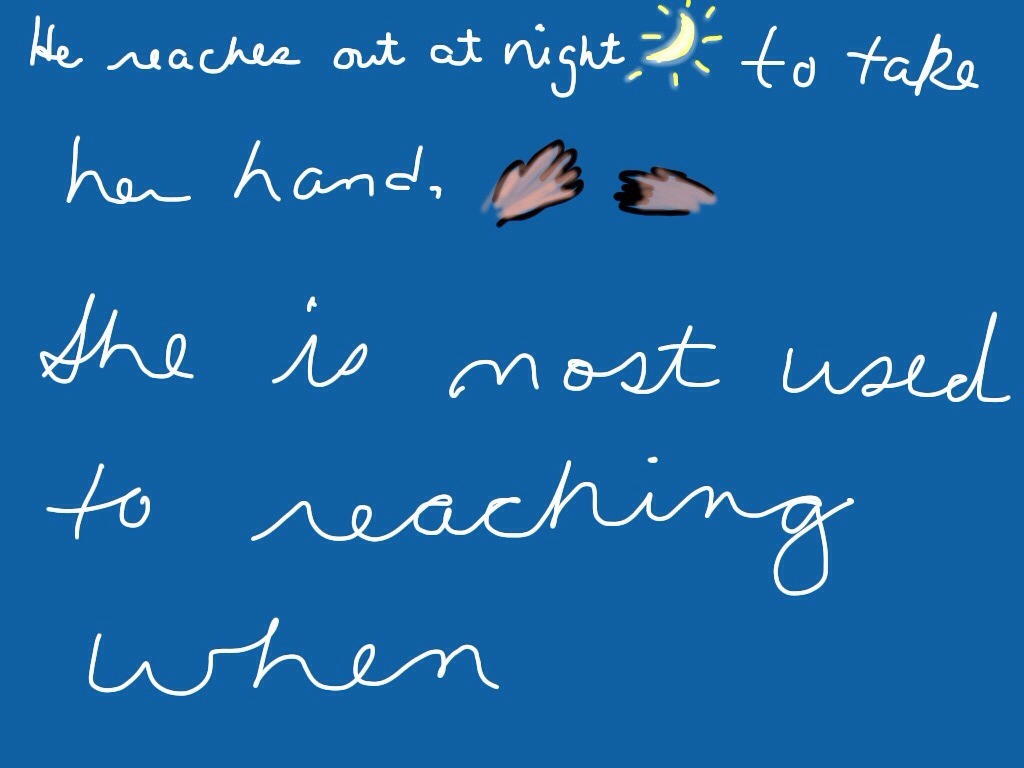 He reaches out at night to take
her hand,
She is most used
to reaching
when